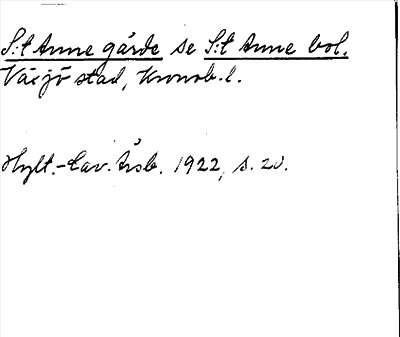 S:t Anne gärde se S:t Anne bol.
Växjö stad, Kronob. l.
Hylt.-Cav. Årsb. 1922, s. 20.